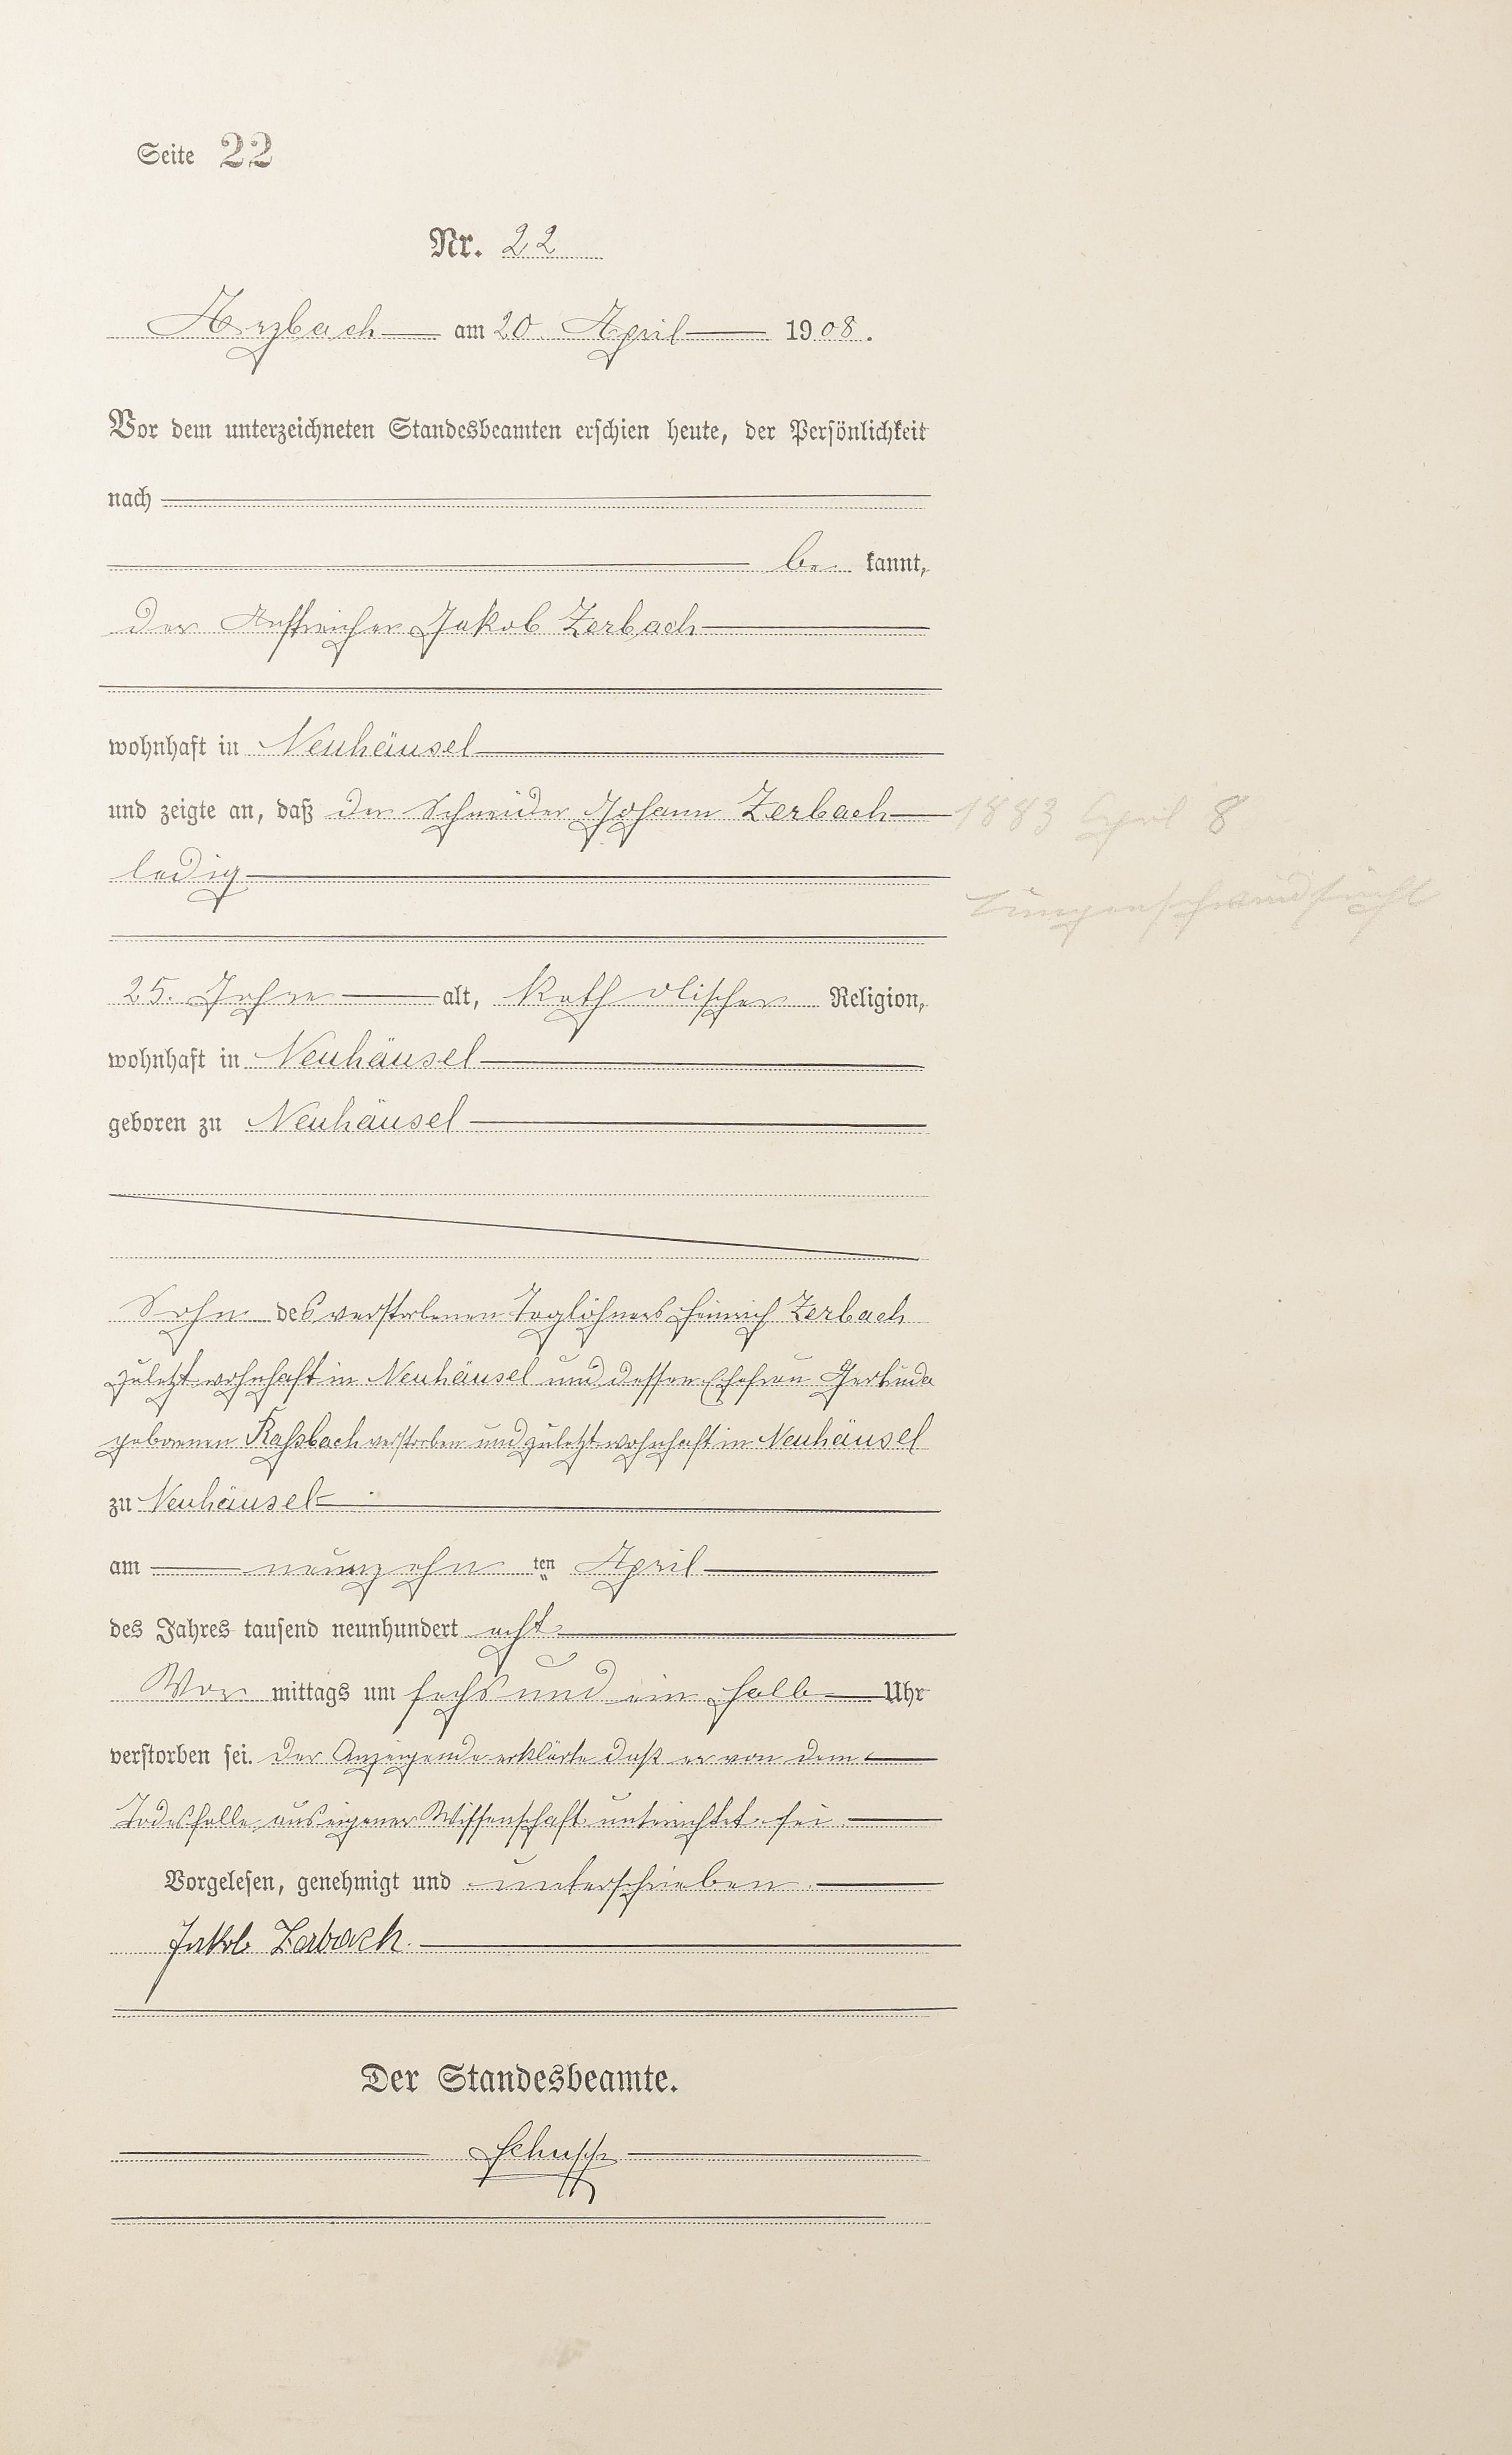 Seite 22
Nr. 22
Arzbach am 20. April 1908.
Vor dem unterzeichneten Standesbeamten erschien heute, der Persönlichkeit
nach
be kannt,
der Anstreicher Jakob Zerbach
wohnhaft in Neuhäusel
und zeigte an, daß der Schneider Johann Zerbach
1883 April 8
ledig
Lungenschwindsucht
25. Jahre alt, katholischer Religion,
wohnhaft in Neuhäusel
geboren zu Neuhäusel
Sohn des verstorbenen Taglöhners Heinrich Zerbach
zuletzt wohnhaft in Neuhäusel und dessen Ehefrau
geborenen verstorben und zuletzt wohnhaft in Neuhäusel
zu Neuhäusel
am neunzehn ten April
des Jahres tausend neunhundert acht
Vor mittags um sechs und ein halb Uhr
verstorben sei. Der Anzeigende erklärte daß er von dem
Todesfalle aus eigener Wissenschaft unterrichtet sei.
Vorgelesen, genehmigt und unterschrieben.
Jakob Zerbach.
Der Standesbeamte.